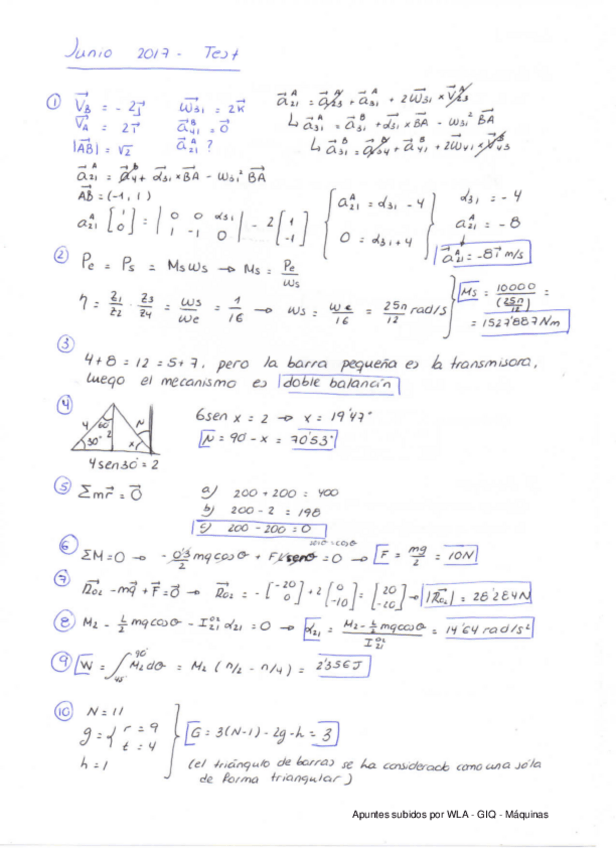 Junio 2017 - Test
① V⃗B = - 2j⃗ ω⃗31 = 2k⃗ a⃗21^A = a⃗23^A + a⃗31^A + 2ω⃗31 × V⃗23^A
V⃗A = 2i⃗ a⃗41^B = 0⃗ ↳ a⃗31^A = a⃗31^B + α⃗31 × BA - ω31² BA
|AB| = √2 a⃗21^A ? ↳ a⃗31^B = a⃗34^B + a⃗41^B + 2ω⃗41 × V⃗34^B
a⃗21^A = a⃗41^B + α⃗31 × BA - ω31² BA
AB = (-1, 1)
a21^A [1 0] = | 0 0 α31 1 -1 0 | - 2 [1 -1] { a21^A = α31 - 4 0 = α31 + 4 } α31 = - 4 a21^A = - 8 a⃗21^A = -8i⃗ m/s
② Pe = Ps = Ms ωs → Ms = Pe/ωs
η = Z1/Z2 · Z3/Z4 = ωs/ωe = 1/16 → ωs = ωe/16 = 25π/12 rad/s } Ms = 10000/(25π/12) = = 1527'887 Nm
③
4 + 8 = 12 = 5 + 7, pero la barra pequeña es la transmisora,
luego el mecanismo es doble balancín
④ 4 60° 2 30° N x 6sen x = 2 → x = 19'47°
N = 90 - x = 70'53°
4sen30° = 2
⑤ Σmr⃗ = 0⃗ a) 200 + 200 = 400
b) 200 - 2 = 198
c) 200 - 200 = 0
senθ=cosθ
⑥ ΣM=0 → - 0'3/2 mg cosθ + F senθ = 0 → F = mg/2 = 10N
⑦ R⃗02 - mg⃗ + F⃗ = 0⃗ → R⃗02 = - [-20 0] + 2 [0 -10] = [20 -20] → |R⃗02| = 28'284N
⑧ M2 - L/2 mg cosθ - I21^02 α21 = 0 → α21 = (M2 - L/2 mg cosθ)/I21^02 = 14'64 rad/s²
⑨ W = ∫45°^90° M2 dθ = M2 (π/2 - π/4) = 2'356 J
⑩ N = 11
g = { r = 9 t = 4 } G = 3(N-1) - 2g - h = 3
h = 1 (el triángulo de barras se ha considerado como una sóla
de forma triangular)
Apuntes subidos por WLA - GIQ - Máquinas